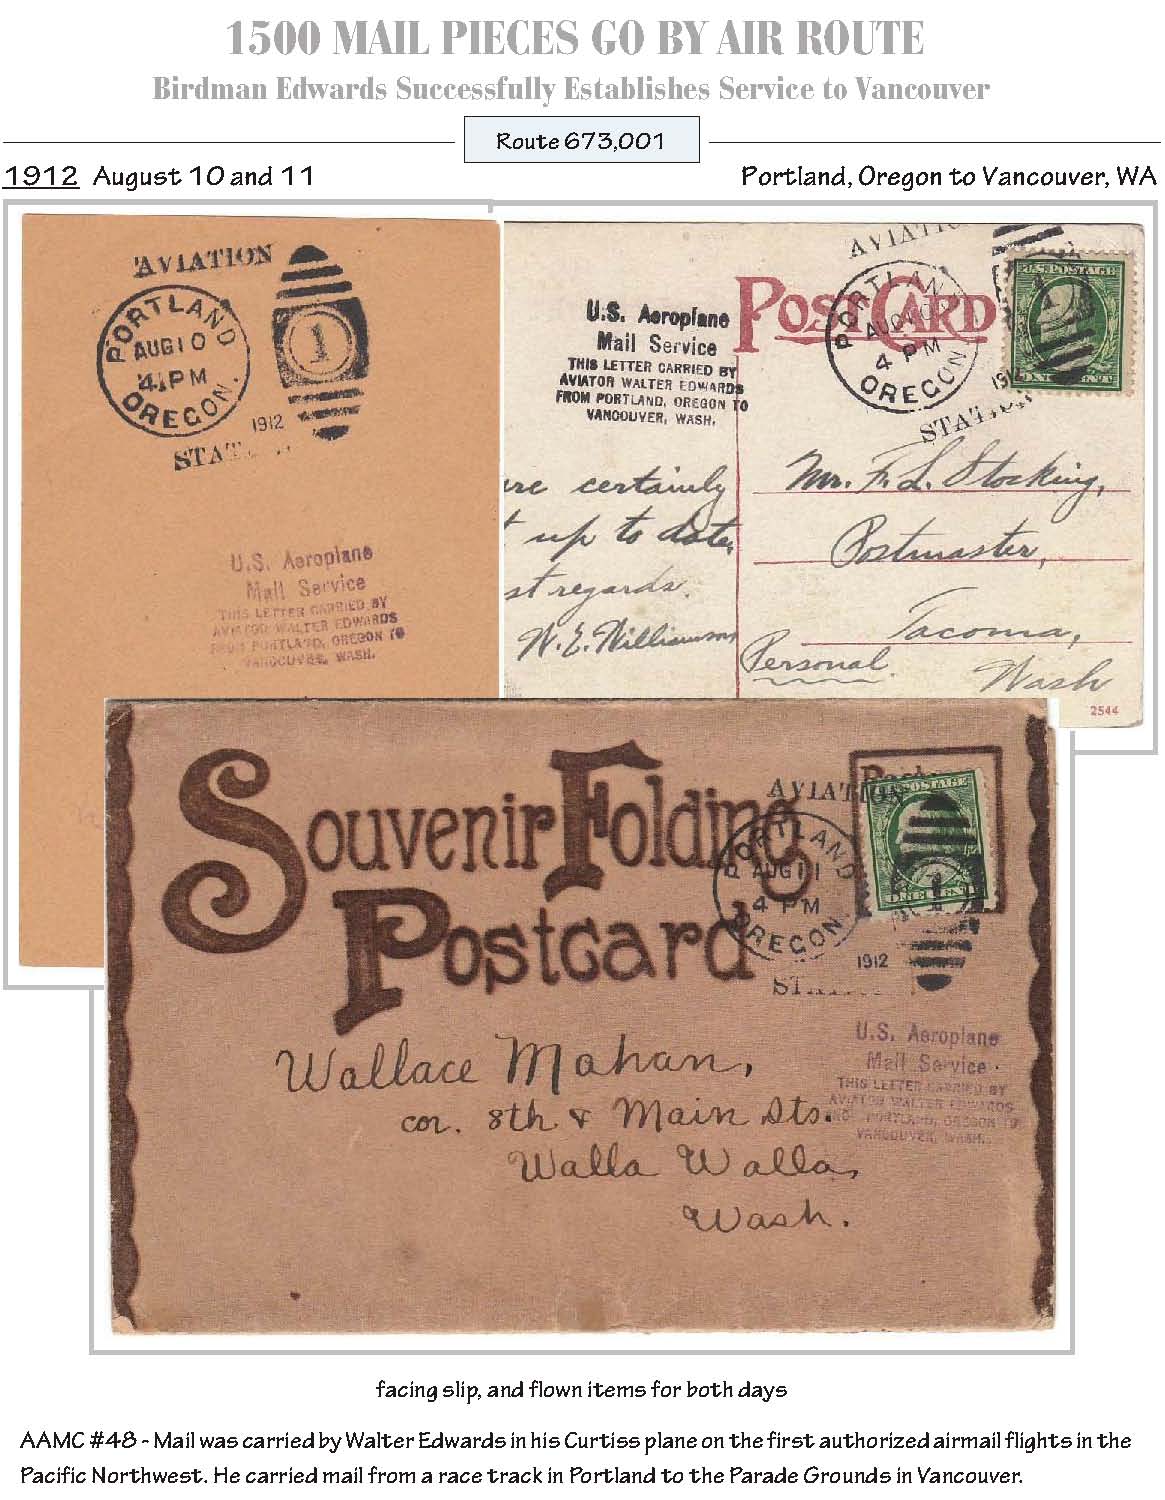 1500 MAIL PIECES GO BY AIR ROUTE
Birdman Edwards Successfully Establishes Service to Vancouver
Route 673,001
1912 August 10 and 11
Portland, Oregon to Vancouver, WA
AVIATION
PORTLAND
AUG 10
4 PM
OREGON.
1912
1
U.S. Aeroplane
Mail Service
THIS LETTER CARRIED BY
AVIATOR WALTER EDWARDS
FROM PORTLAND, OREGON TO
VANCOUVER, WASH.
POST CARD
U.S. Aeroplane
Mail Service
THIS LETTER CARRIED BY
AVIATOR WALTER EDWARDS
FROM PORTLAND, OREGON TO
VANCOUVER, WASH.
PORTLAND
AUG 10
4 PM
OREGON
1912
STATION
U.S. POSTAGE
certainly
up to date,
regards.
W. E. Williamson
Mr. F. L. Stocking,
Postmaster,
Tacoma,
Personal.
Wash
2544
Souvenir Folding
Postcard
AVIATION
PORTLAND
AUG 11
4 PM
OREGON
1912
1
U.S. Aeroplane
Mail Service
THIS LETTER CARRIED BY
AVIATOR WALTER EDWARDS
PORTLAND, OREGON TO
VANCOUVER, WASH.
Wallace Mahan,
cor. 8th & Main Sts.
Walla Walla,
Wash.
facing slip, and flown items for both days
AAMC #48 - Mail was carried by Walter Edwards in his Curtiss plane on the first authorized airmail flights in the
Pacific Northwest. He carried mail from a race track in Portland to the Parade Grounds in Vancouver.